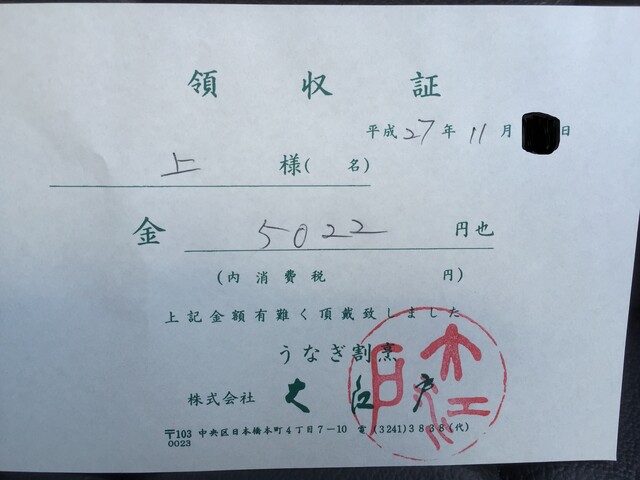 領収証
平成27年11月 日
上 様( 名)
金 5022 円也
(内消費税 円)
上記金額有難く頂戴致しました
うなぎ割烹
株式会社 大江戸
〒103 0023 中央区日本橋本町4丁目7-10 電(3241)3838(代)
大江戸